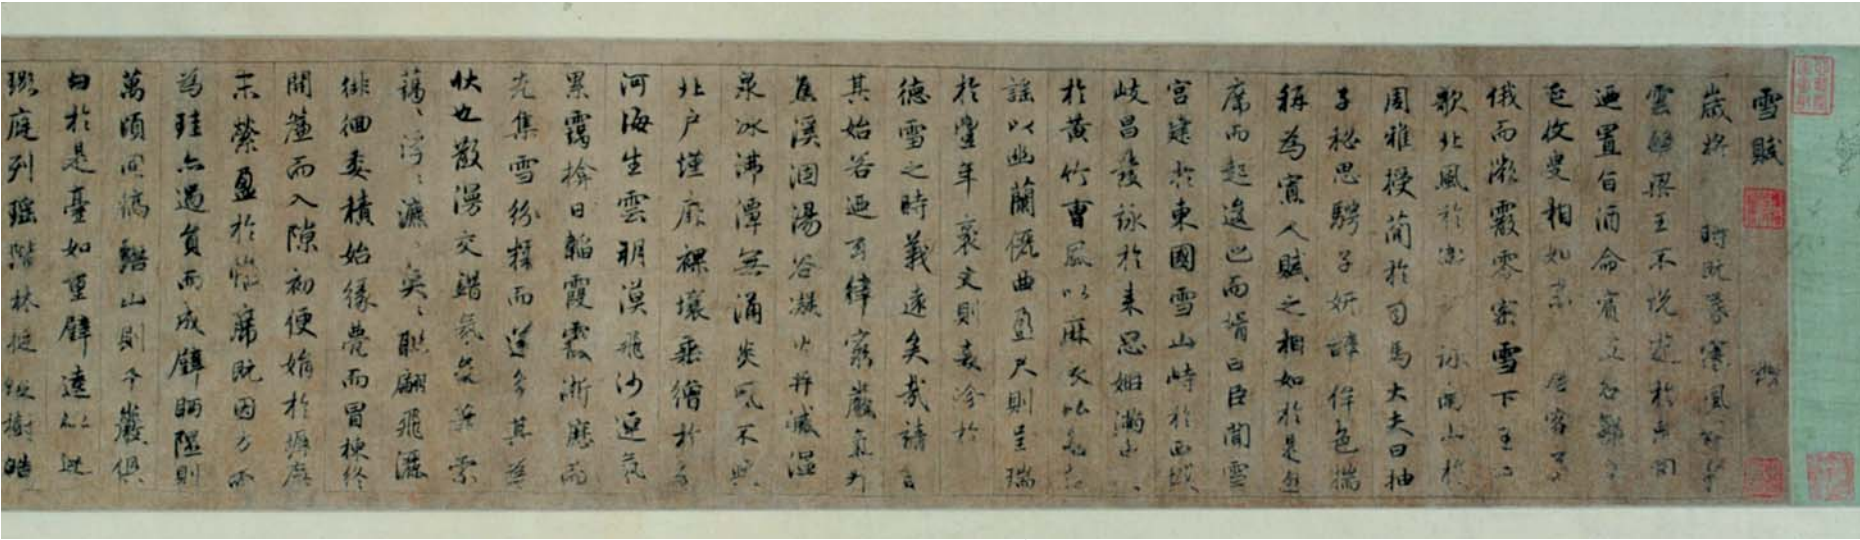 雪賦
歲將 時既昏寒風
雲繁梁王不悅遊於兔園
迺置旨酒命賓友召鄒
延枚叟相如末 居客
俄而微霰零密雪下王
歌北風於衛 詠南山於
周雅授簡於司馬大夫曰抽
子秘思騁子妍辭侔色揣
稱為寡人賦之相如於是避
席而起逡巡而揖曰臣聞雪
宮建於東國雪山峙於西域
岐昌發詠於來思姬滿申
於黃竹曹風以麻衣比色
謠以幽蘭儷曲盈尺則呈瑞
於豐年袤丈則表沴於
德雪之時義遠矣哉請言
其始若迺玄律窮嚴氣升
焦溪涸湯谷凝火井滅溫
泉冰沸潭無涌炎風不興
北戶墐扉裸壤垂繒於是
河海生雲朔漠飛沙連氛
累靄揜日韜霞霰淅瀝而
先集雪紛糅而遂多其為
狀也散漫交錯氛氳蕭索
藹〻浮〻瀌〻奕〻聯翩飛灑
徘徊委積始緣甍而冒棟終
開簾而入隙初便娟於墀廡
末縈盈於帷席既因方而
為珪亦遇負而成璧眄隰則
萬頃同縞瞻山則千巖俱
白於是臺如重璧逵似連
璐庭列瑤階林挺瓊樹皓